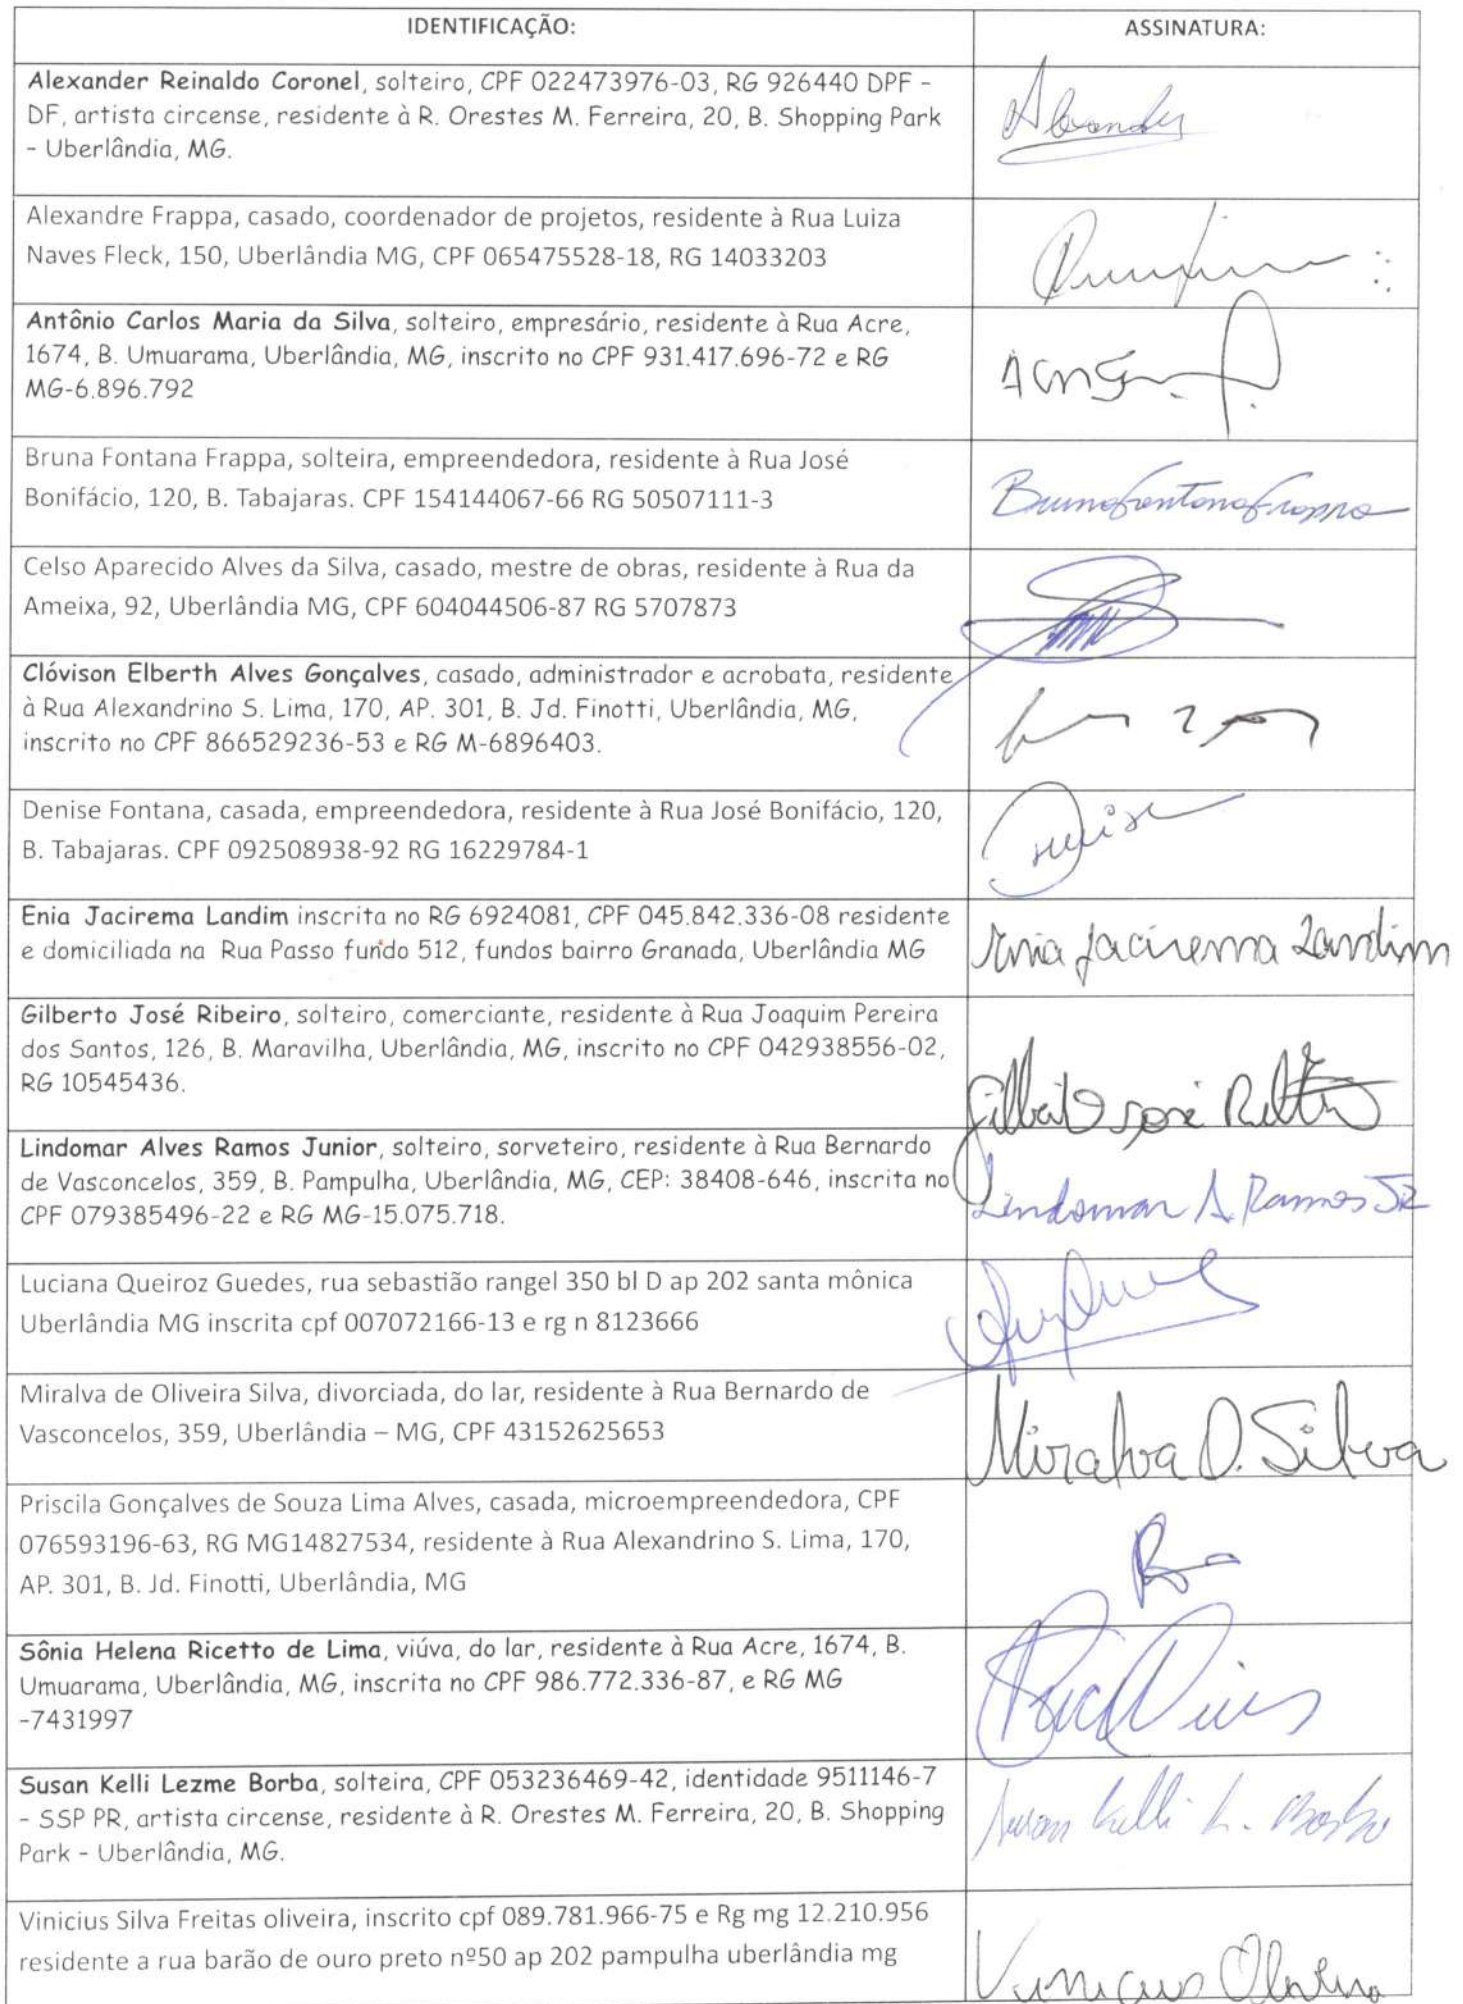 IDENTIFICAÇÃO: ASSINATURA:
Alexander Reinaldo Coronel, solteiro, CPF 022473976-03, RG 926440 DPF -
DF, artista circense, residente à R. Orestes M. Ferreira, 20, B. Shopping Park
- Uberlândia, MG.
Alexandre Frappa, casado, coordenador de projetos, residente à Rua Luiza
Naves Fleck, 150, Uberlândia MG, CPF 065475528-18, RG 14033203
Antônio Carlos Maria da Silva, solteiro, empresário, residente à Rua Acre,
1674, B. Umuarama, Uberlândia, MG, inscrito no CPF 931.417.696-72 e RG
MG-6.896.792
Bruna Fontana Frappa, solteira, empreendedora, residente à Rua José
Bonifácio, 120, B. Tabajaras. CPF 154144067-66 RG 50507111-3
Bruna Fontana Frappa
Celso Aparecido Alves da Silva, casado, mestre de obras, residente à Rua da
Ameixa, 92, Uberlândia MG, CPF 604044506-87 RG 5707873
Clóvison Elberth Alves Gonçalves, casado, administrador e acrobata, residente
à Rua Alexandrino S. Lima, 170, AP. 301, B. Jd. Finotti, Uberlândia, MG,
inscrito no CPF 866529236-53 e RG M-6896403.
Denise Fontana, casada, empreendedora, residente à Rua José Bonifácio, 120,
B. Tabajaras. CPF 092508938-92 RG 16229784-1
Denise
Enia Jacirema Landim inscrita no RG 6924081, CPF 045.842.336-08 residente
e domiciliada na Rua Passo fundo 512, fundos bairro Granada, Uberlândia MG
Enia Jacirema Landim
Gilberto José Ribeiro, solteiro, comerciante, residente à Rua Joaquim Pereira
dos Santos, 126, B. Maravilha, Uberlândia, MG, inscrito no CPF 042938556-02,
RG 10545436.
Gilberto José Ribeiro
Lindomar Alves Ramos Junior, solteiro, sorveteiro, residente à Rua Bernardo
de Vasconcelos, 359, B. Pampulha, Uberlândia, MG, CEP: 38408-646, inscrita no
CPF 079385496-22 e RG MG-15.075.718.
Lindomar A. Ramos JR
Luciana Queiroz Guedes, rua sebastião rangel 350 bl D ap 202 santa mônica
Uberlândia MG inscrita cpf 007072166-13 e rg n 8123666
Miralva de Oliveira Silva, divorciada, do lar, residente à Rua Bernardo de
Vasconcelos, 359, Uberlândia – MG, CPF 43152625653
Miralva O. Silva
Priscila Gonçalves de Souza Lima Alves, casada, microempreendedora, CPF
076593196-63, RG MG14827534, residente à Rua Alexandrino S. Lima, 170,
AP. 301, B. Jd. Finotti, Uberlândia, MG
Sônia Helena Ricetto de Lima, viúva, do lar, residente à Rua Acre, 1674, B.
Umuarama, Uberlândia, MG, inscrita no CPF 986.772.336-87, e RG MG
-7431997
Susan Kelli Lezme Borba, solteira, CPF 053236469-42, identidade 9511146-7
- SSP PR, artista circense, residente à R. Orestes M. Ferreira, 20, B. Shopping
Park - Uberlândia, MG.
Susan Kelli L. Borba
Vinicius Silva Freitas oliveira, inscrito cpf 089.781.966-75 e Rg mg 12.210.956
residente a rua barão de ouro preto nº50 ap 202 pampulha uberlândia mg
Vinicius Oliveira